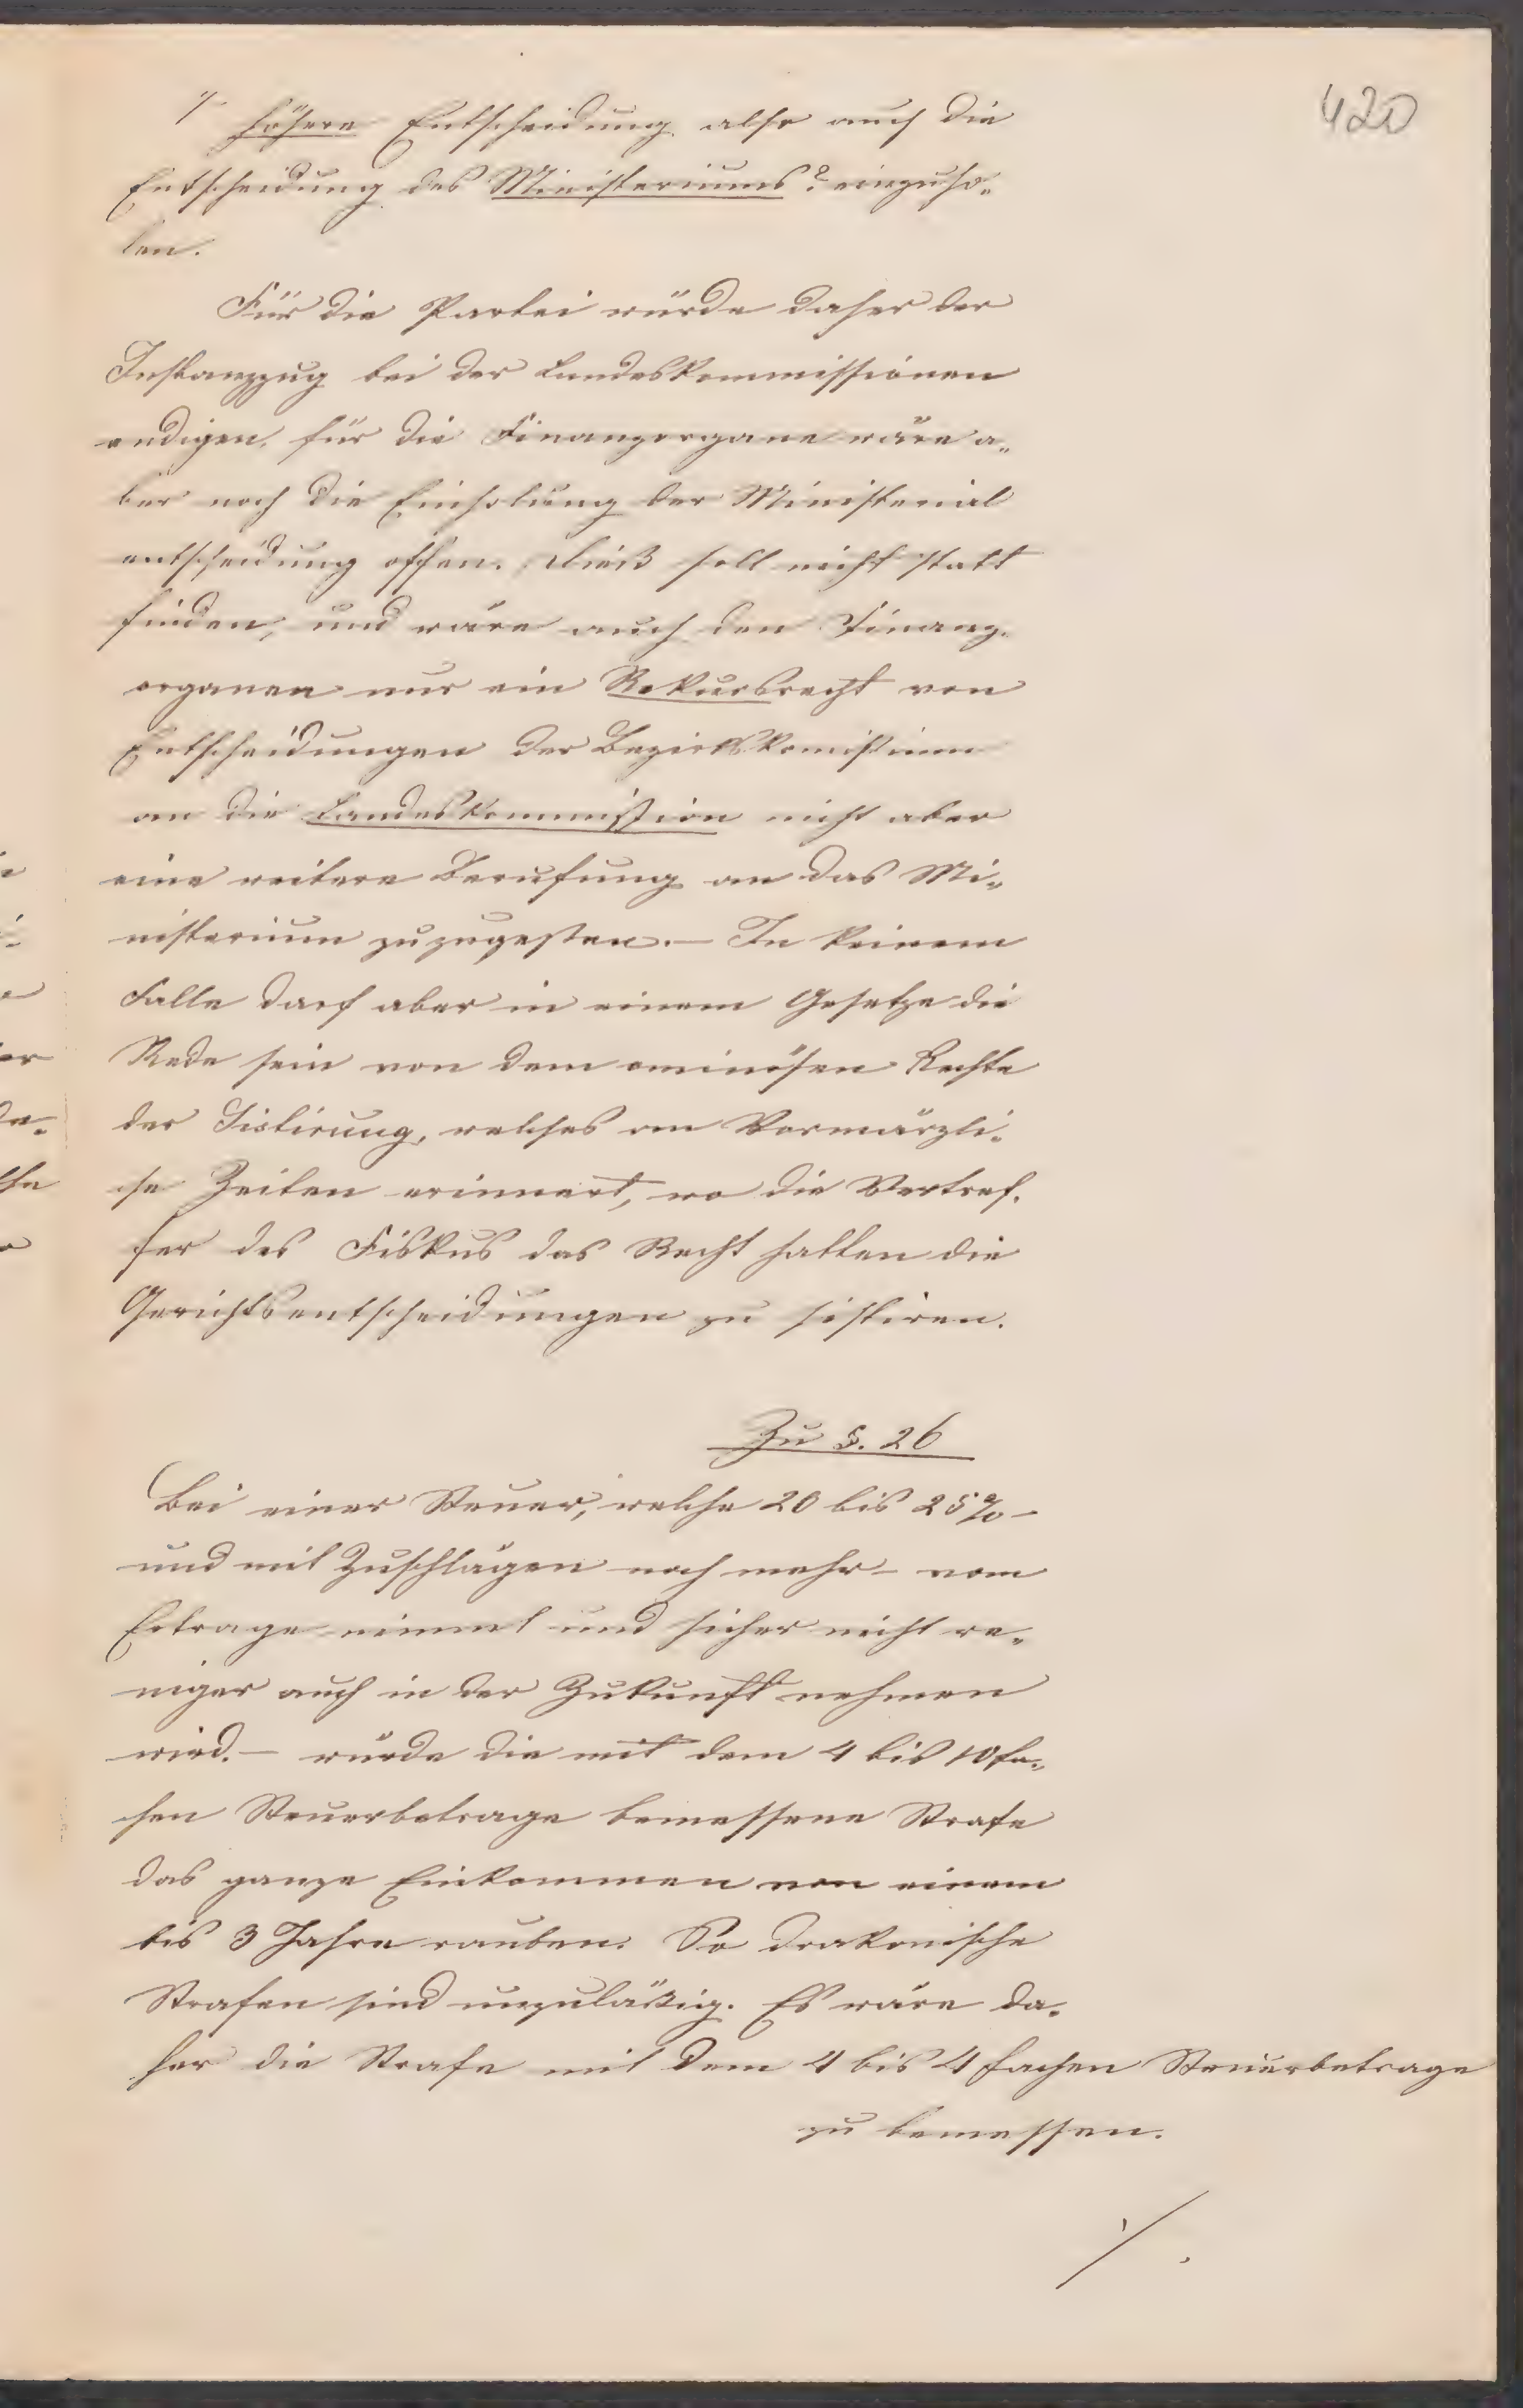 420
höhere Entscheidung also auch die
Entscheidung des Ministeriums? einzuho„
len.
Für die Partei würde daher der
Instanzzug bei der Landeskommissionen
endigen, für die Finanzorgane wäre a„
ber noch die Einholung der Ministerial
entscheidung offen. Dieß soll nicht statt
finden, und wäre auch den Finanz„
organen nur ein Rekursrecht von
Entscheidungen der Bezirkskomission
an die Landeskommission nicht aber
eine weitere Berufung an das Mi„
nisterium zuzugestehen. – In keinem
Falle darf aber in einem Gesetze die
Rede sein von dem ominösen Rechte
der Sistirung, welches an Vormärzli„
che Zeiten erinnert, wo die
des Fiskus das Recht hatten die
Gerichtsentscheidungen zu sistiren.
Zu §. 26
Bei einer Steuer, welche 20 bis 25% –
und mit Zuschlägen noch mehr – vom
Ertrage nimmt und sicher nicht we„
niger auch in der Zukunft nehmen
wird. – würde die mit dem 4 bis 10fa„
chen Steuerbetrage bemessene Strafe
das ganze Einkommen von einem
bis 3 Jahre rauben. So drakonische
Strafen sind unzuläßig. Es wäre da„
her die Strafe mit dem 1 bis 4 fachen Steuerbetrage
zu bemessen.
./.